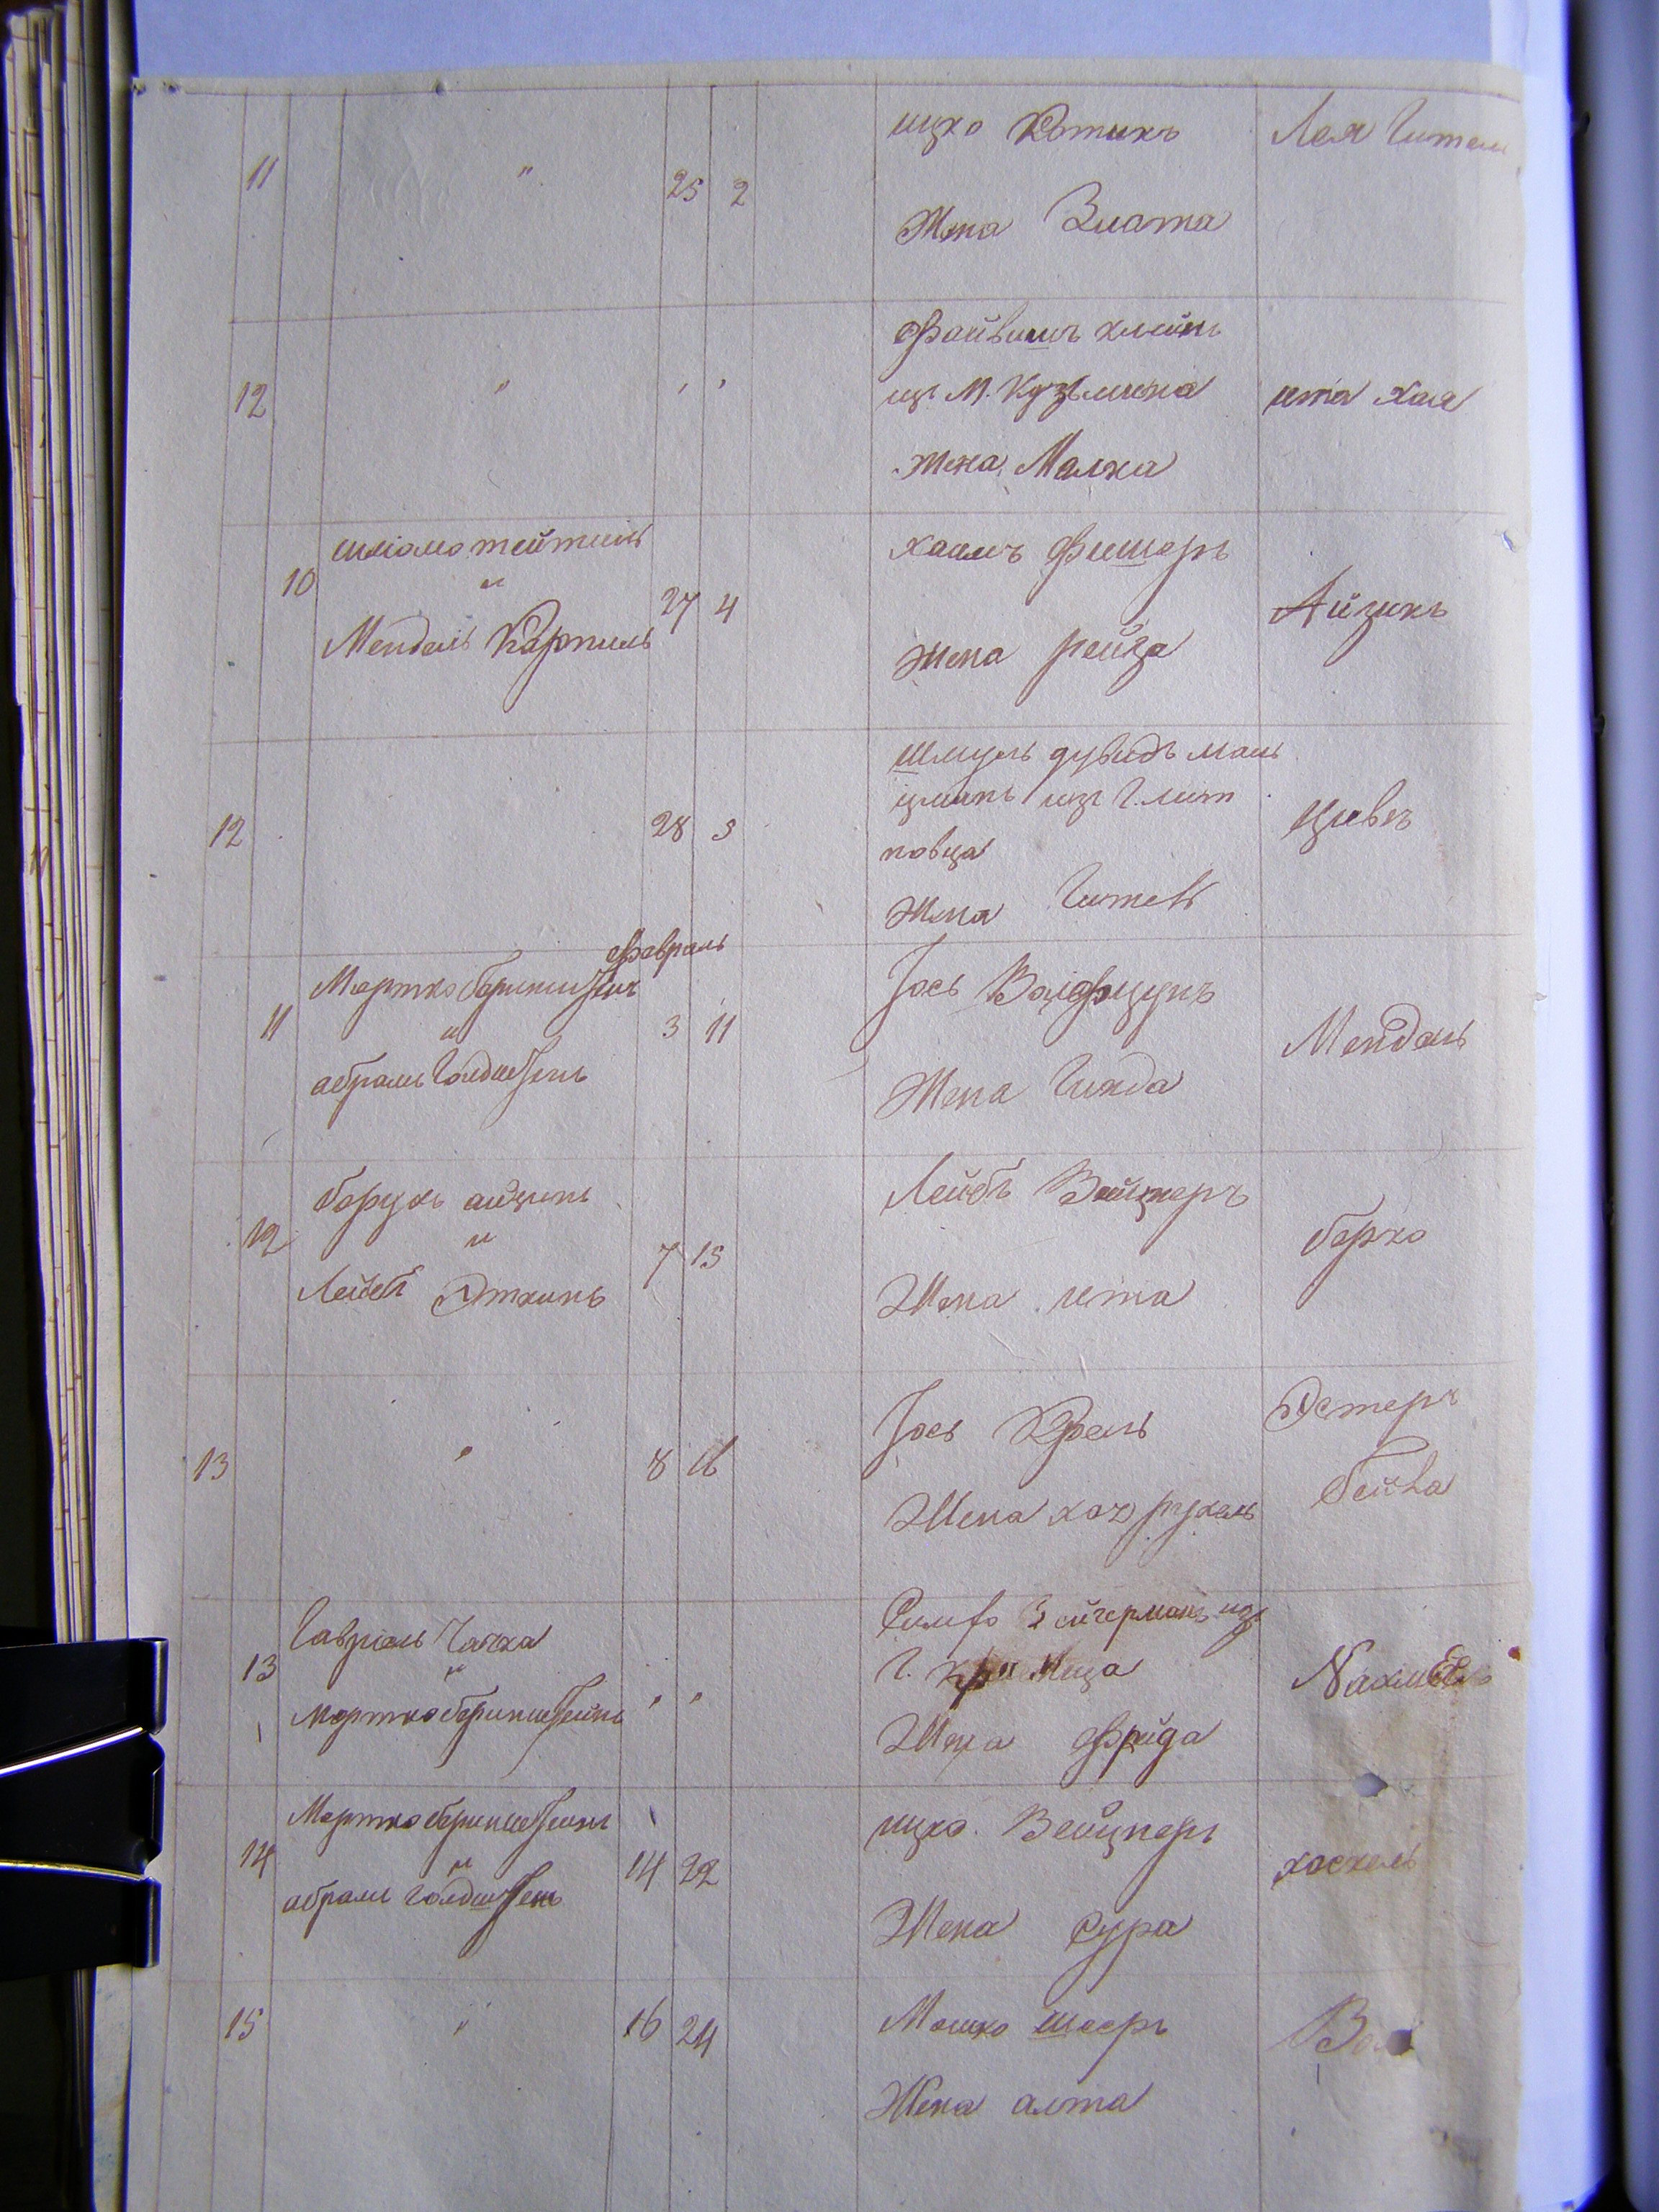 11 " 25 2
ицко Котикъ
Жена Злота
Лея Гитель
12 " " "
Файвишъ клейнъ
изъ М. Кузьмина
жена Малка
ита Хая
10
шліомо тейтель
и
Мендель Карпель
27 4
хаимъ Фишеръ
Жена рейза
Айзикъ
12 28 5
Шмуль дувидъ
изъ Г. лит
повца
Жена Гитель
Цивъ
Февраль
11
Мортко беринштеинъ
и
абрамъ Голдштеинъ
3 11
Іось
Жена Гинда
Мендель
12
борухъ
и
Лейбъ Эткинъ
7 15
Лейбъ Вейцнеръ
Жена ита
берко
13 " 8 16
Іось Крель
Жена хая рухель
Эстеръ
бейла
13
Гавріель Чачка
и
Мортко беринштейнъ
" "
Симхо Зейгерманъ изъ
Г.
Жена Фрейда
14
Мортко беринштеинъ
и
абрамъ голдштейнъ
14 22
ицко Вейцнеръ
Жена Сура
хаскель
15 " 16 24
Мошко шееръ
Жена алта